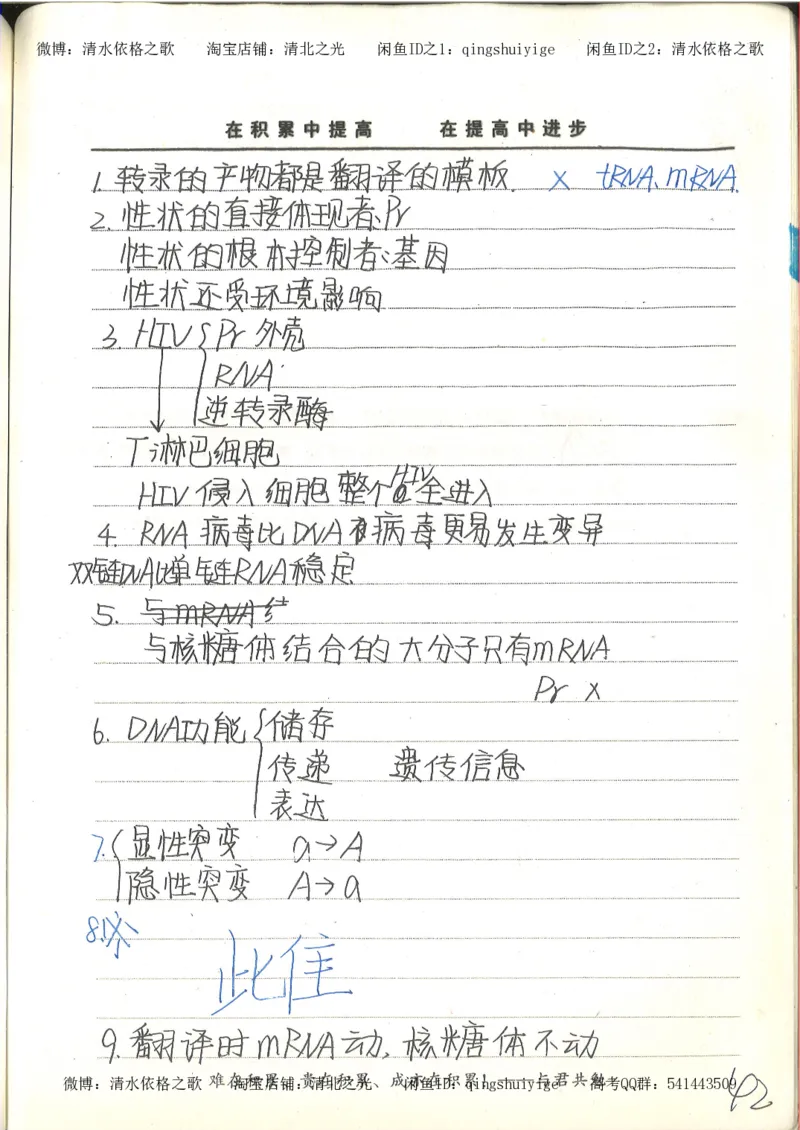 微博：清水依格之歌 淘宝店铺：清北之光 闲鱼ID之1：qingshuiyige 闲鱼ID之2：清水依格之歌
在积累中提高 在提高中进步
1. 转录的产物都是翻译的模板. × tRNA、mRNA.
2. 性状的直接体现者:Pr
性状的根本控制者:基因
性状还受环境影响
3. HIV { Pr外壳
RNA
逆转录酶
T淋巴细胞
HIV侵入细胞整个HIV全进入
4. RNA病毒比DNA病毒更易发生变异
双链DNA比单链RNA稳定
5. 与mRNA结
与核糖体结合的大分子只有mRNA
Pr ×
6. DNA功能 { 储存
传递 遗传信息
表达
7. { 显性突变 a→A
隐性突变 A→a
8.
9. 翻译时mRNA动, 核糖体不动
微博：清水依格之歌 淘宝店铺：清北之光 闲鱼ID：qingshuiyige 高考QQ群：541443509
42